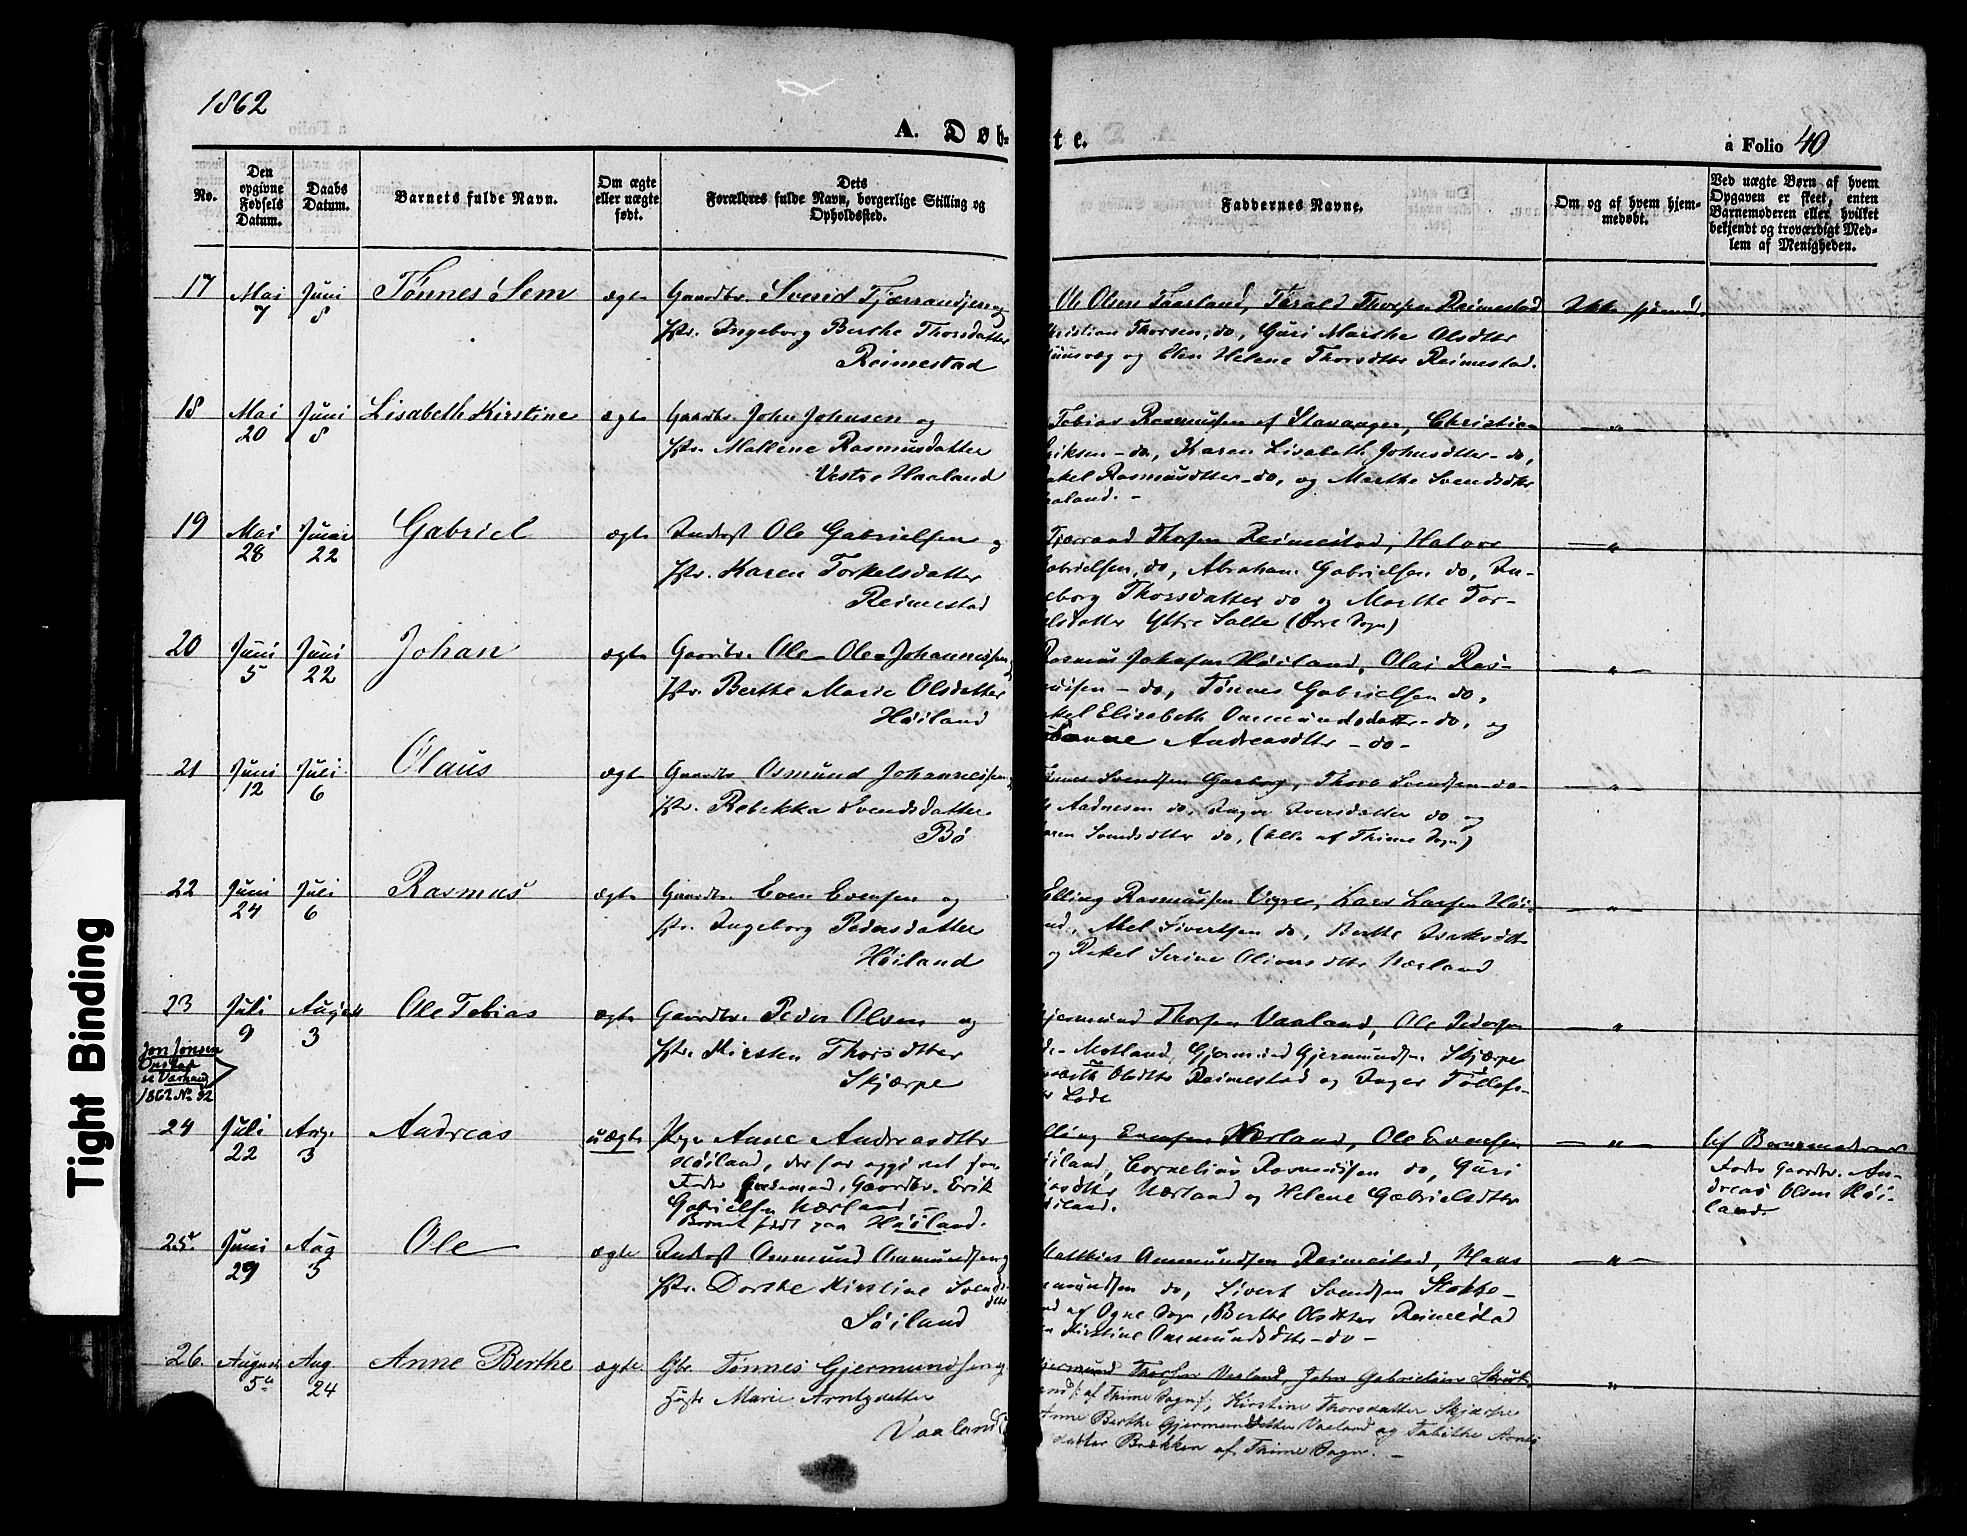 1862
A. Døb-
te.
a Folio 40
No.
Den opgivne Fødsels Datum.
Daabs Datum.
Barnets fulde Navn.
Om ægte eller uægte født.
Dets Forældres fulde Navn, borgerlige Stilling og Opholdssted.
Faddernes Navne.
Om og af hvem hjemmedøbt.
Ved uægte Børn af hvem Opgaven er skeet, enten Barnemoderen eller hvilket bekjendt og troværdigt Medlem af Menigheden.
17 Mai 7 Juni 8 Tønnes Sem ægte Gaardbr. Svend Tjærrandsen og
Hstr. Ingeborg Berthe Thorsdatter
Reimestad
Ole Olsen Taarland, Tarald Thorsen Reimestad Ikke hjemmed.
Christian Thorsen, do, Guri Marthe Olsdtter
og Elen Helene Thorsdtter Reimestad.
18 Mai 20 Juni 8 Lisabeth Kirstine ægte Gaardbr. John Johnsen og
Hstr. Mallene Rasmusdatter
Vestre Haaland
Tobias Rasmussen af Stavanger, Christian —"—
Eriksen - do, Karen Lisabeth Johnsdtter - do,
Rakel Rasmusdtter - do, og Marthe Svendsdtter
Haaland. -
19 Mai 28 Juni 22 Gabriel ægte Inderst Ole Gabrielsen og
Hstr. Karen Torkelsdatter
Reimestad
Tjærrand Thorsen Reimestad, Halvor —"—
Gabrielsen, do, Abraham Gabrielsen do, In-
geborg Thorsdatter do og Marthe Tor-
kelsdatter Yttre Salte (Orre Sogn)
20 Juni 5 Juni 22 Johan ægte Gaardbr. Ole Johannessen og
Hstr. Berthe Marie Olsdatter
Høiland
Rasmus Johansen Høiland, Olai Ras- —"—
mussen - do, Tønnes Gabrielsen do,
Rakel Elisabeth Ommundsdatter - do, og
Andreasdtter - do -
21 Juni 12 Juli 6 Olaus ægte Gaardbr. Osmund Johannessen og
Hstr. Rebekka Svendsdatter
Bø
Svendsen Garborg, Thore Svendsen do —"—
Aadnesen do, Inger Iversdatter do og
Karen Svendsdtter do, (alle af Thime Sogn)
22 Juni 24 Juli 6 Rasmus ægte Gaardbr. Even Evensen og
Hstr. Ingeborg Pedersdatter
Høiland
Elling Rasmussen Vigre, Lars Larsen Høi- —"—
land, Axel Sivertsen do, Berthe Isaksdtter
og Rakel Serine Oliversdtter Nærland
23 Juli 9 August 3 Ole Tobias ægte Gaardbr. Peder Olsen og
Hstr. Kirsten Thorsdtter
Skjærpe
Gjermund Thorsen Vaaland, Ole Pedersen —"—
Motland, Gjermund Gjermundsen Skjærpe
Olsdtter Reimestad og Inger Tollefs-
Lode
Jon Jonsen
Varhaug
1862 No 32
24 Juli 22 Aug. 3 Andreas uægte Pige Anne Andreasdtter
Høiland, der har opgivet som
Fader Gaardbr. Erik
Gabrielsen Nærland -
Barnet født paa Høiland.
Elling Evensen Nærland, Ole Evensen —"—
Høiland, Cornelius Rasmussen do, Guri
Nærland og Helene Gabrielsdtter
Høiland.
af Barnemoderens
Fader Gaardbr. An-
dreas Olsen Høi-
land.
25 Juni 29 Aug 3 Ole ægte Inderst Ommund Ommundsen og
Hstr. Dorthe Kirstine Svends-
dtter
Søiland
Matthias Ommundsen Reimestad, Hans —"—
Ommundsen do, Sivert Svendsen Stokke-
land af Ogne Sogn, Berthe Olsdtter Reimestad
Kirstine Ommundsdtter - do -
26. August 5 Aug. 24 Anne Berthe ægte Gbr. Tønnes Gjermundsen og
Hustr Marie Arntzdatter
Vaaland
Gjermund Thorsen Vaaland, John Gabrielsen "
af Thime Sogn, Kirstine Thorsdatter Skjærpe
Anne Berthe Gjermundsdatter Vaaland og Tabithe Arnts-
datter Brækken af Thime Sogn. -
Tight Binding